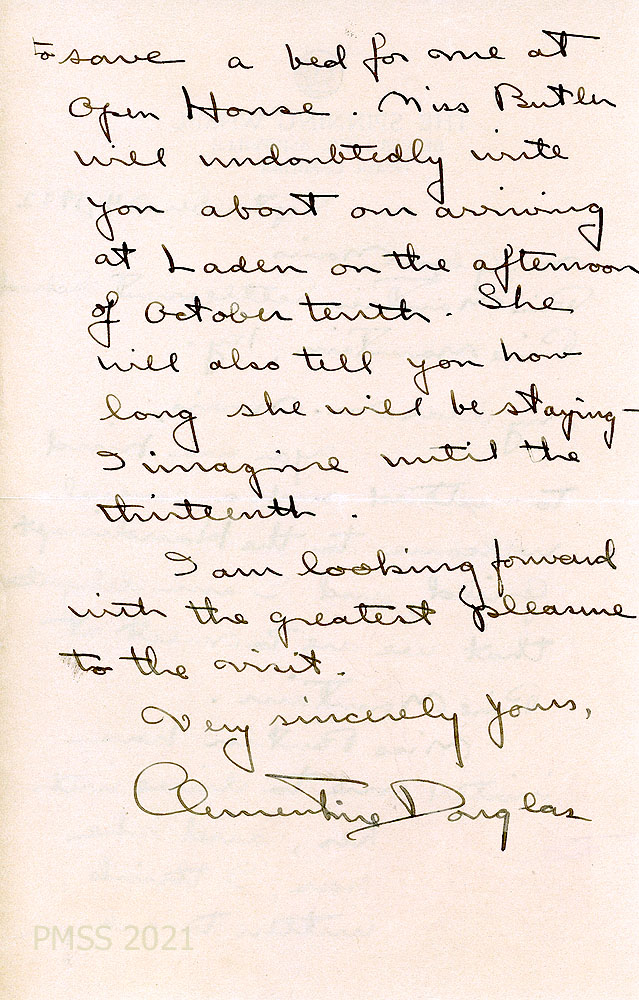 to save a bed for me at
Open House. Miss Butler
will undoubtedly write
you about our arriving
at Laden on the afternoon
of October tenth. She
will also tell you how
long she will be staying –
I imagine until the
thirteenth.
I am looking forward
with the greatest pleasure
to the visit.
Very sincerely yours,
Clementine Douglas
PMSS 2021